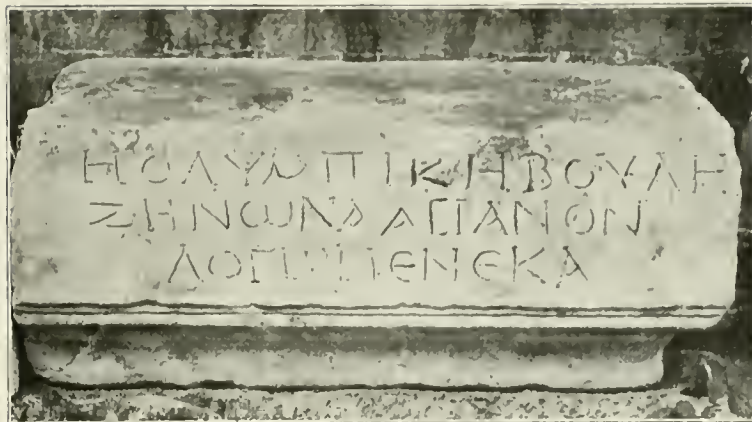 ΗΟΛΥΜΠΙΚΗΒΟΥΛΗ
ΖΗΝΩΝΑ ΑΣΙΑΝΟΝ
ΛΟΓΩΝ ΕΝΕΚΑ